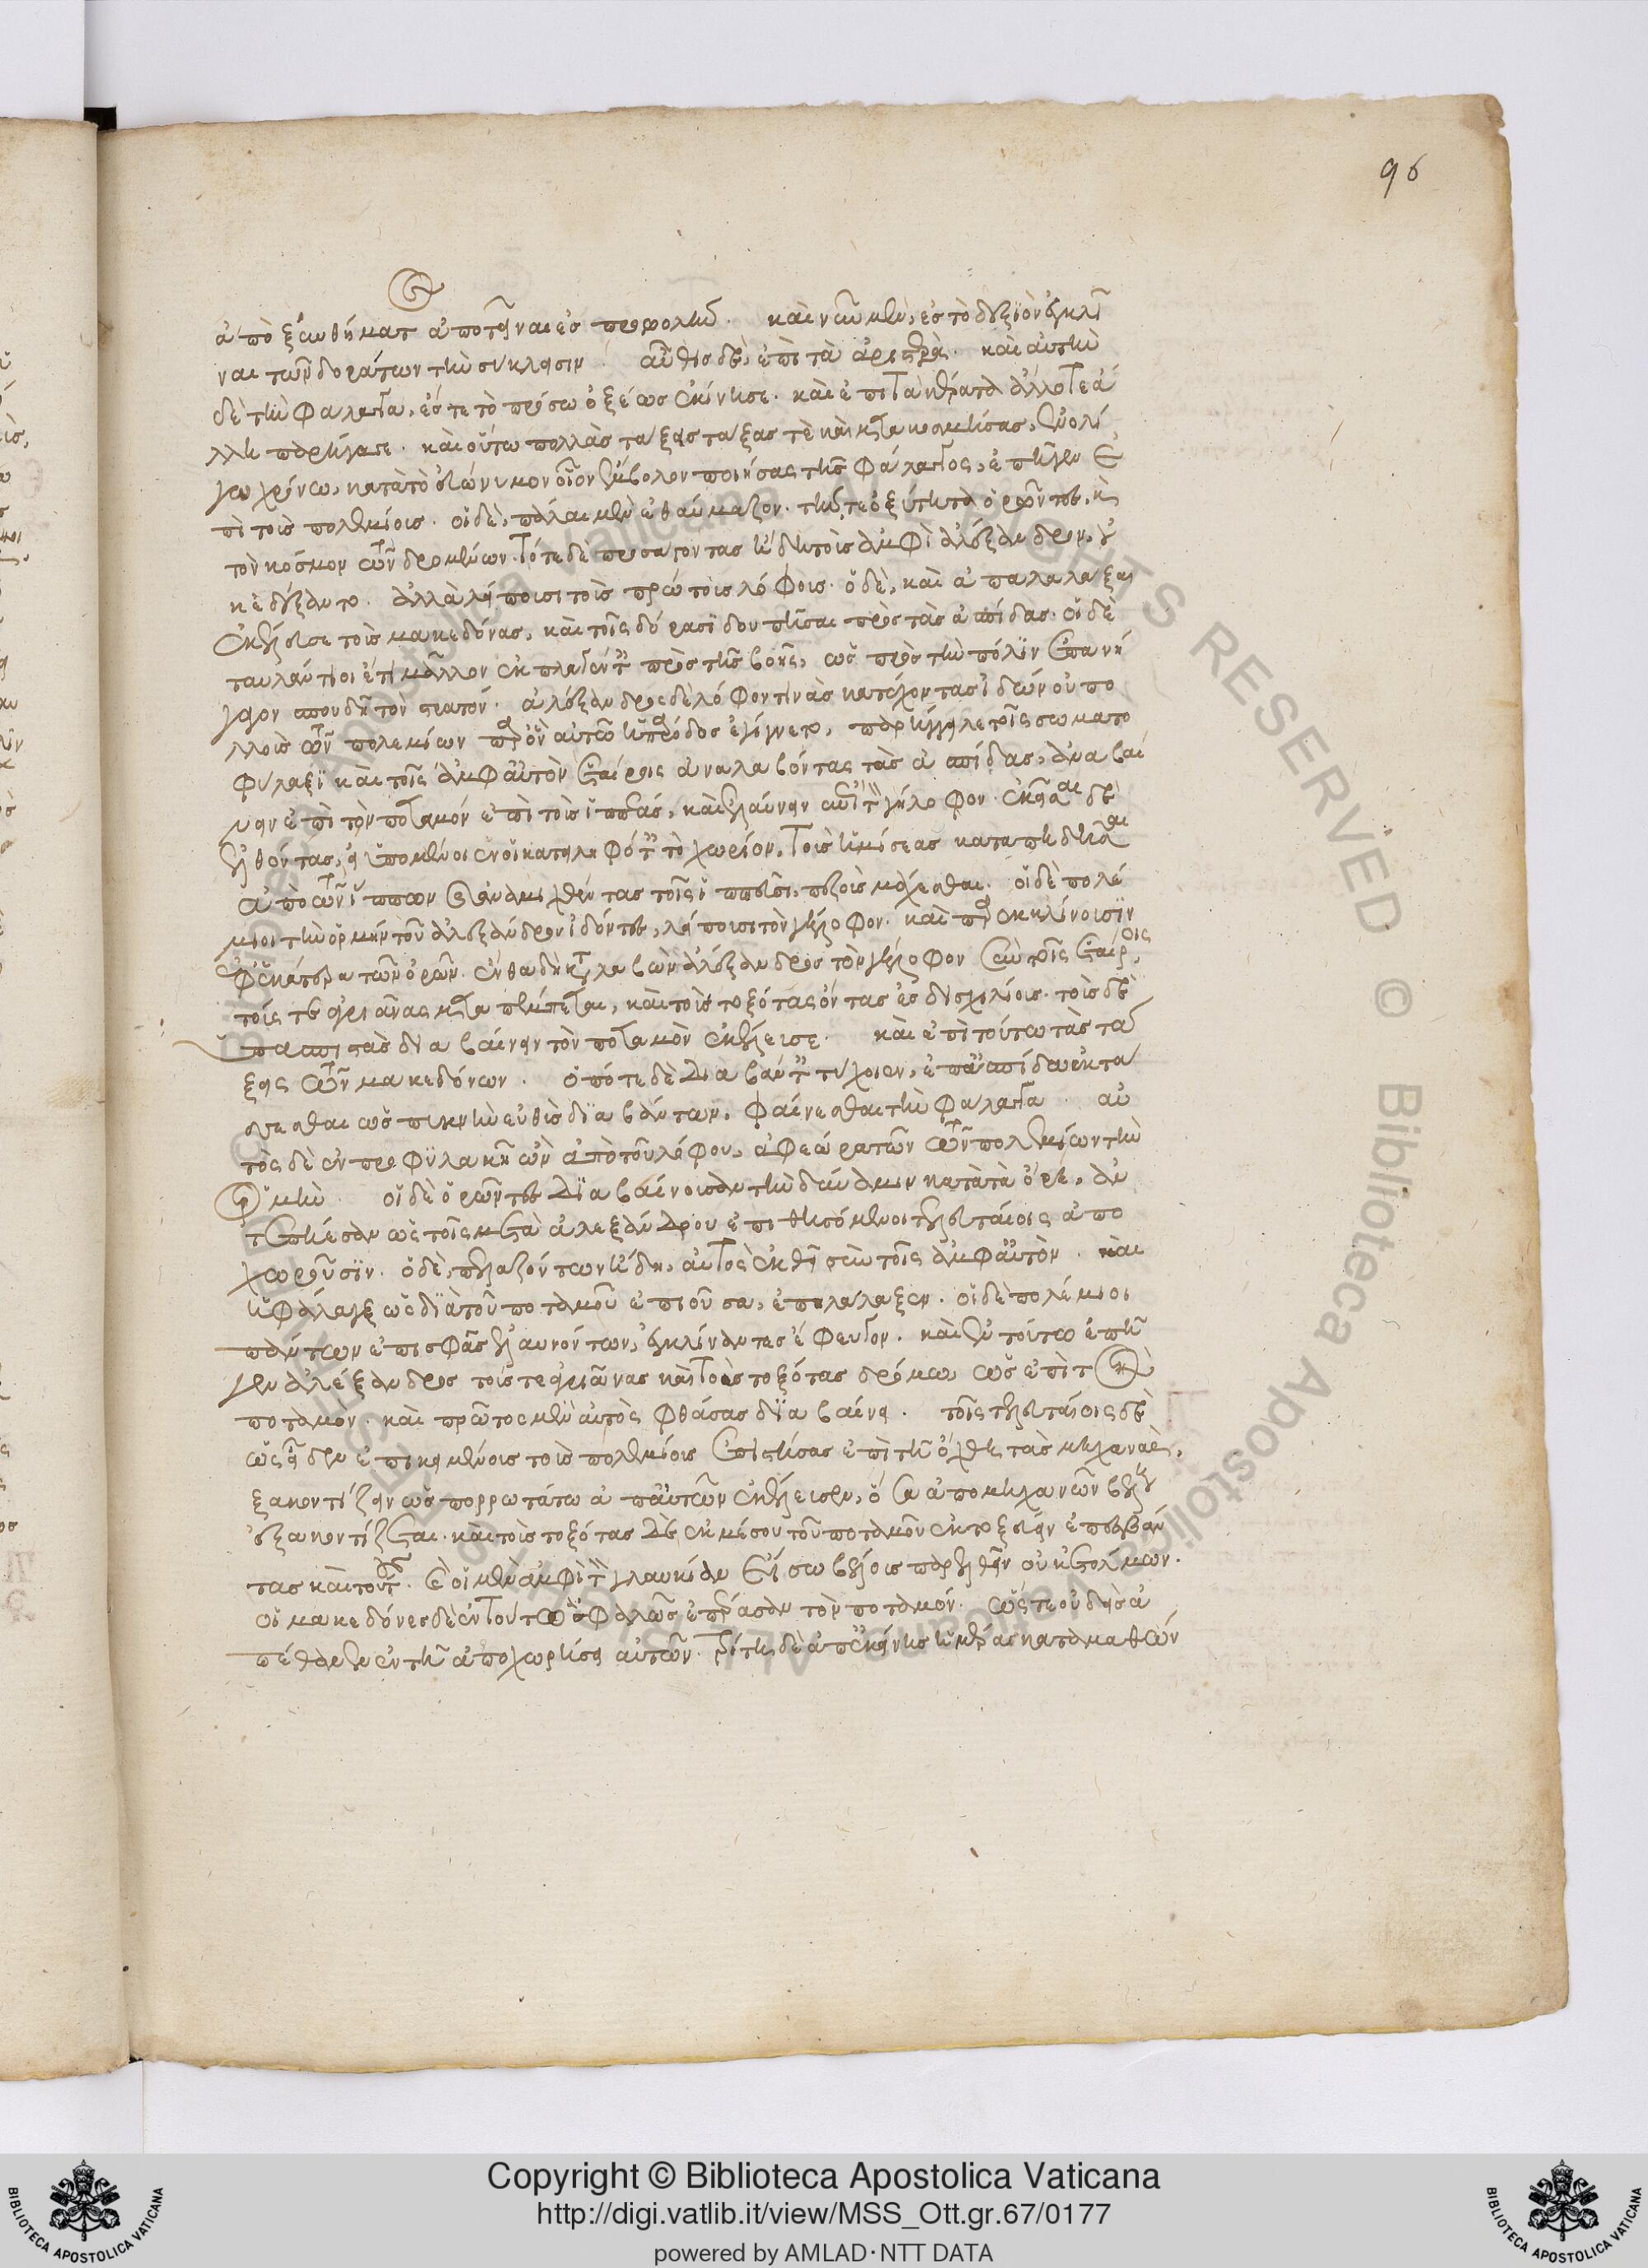 96
ἀπὸ ξυνθήματ ἀποτεῖναι ἐς προβολήν. καὶ νῦν μὲν, ἐς τὸ δεξιὸν ἐγκλῖ
ναι τῶν δοράτων τὴν σύγκλεισιν. αὖθις δὲ, ἐπὶ τὰ ἀριστερά. καὶ αὐτὴν
δὲ τὴν φάλαγγα, ἔς τε τὸ πρόσω ὀξέως ἐκίνησε. καὶ ἐπὶ τὰ κέρατα ἄλλοτε ἄ
λλη παρήγαγε. καὶ οὕτω πολλὰς τάξεις τάξας τὲ καὶ μετακοσμήσας, ἐν ὀλί
γῳ χρόνῳ, κατὰ τὸ εὐώνυμον οἷον ἔμβολον ποιήσας τῆς φάλαγγος, ἐπῆγεν ἐ
πὶ τοὺς πολεμίους. οἱ δὲ, πάλαι μὲν ἐθαύμαζον. τήν τε ὀξύτητα ὁρῶντες, κ
τὸν κόσμον τῶν δρομένων. τότε δὲ προσάγοντας ἤδη τοὺς ἀμφὶ ἀλέξανδρον, οὐ
κ ἐδέξαντο. ἀλλὰ λείπουσι τοὺς πρώτους λόφους. ὁ δὲ, καὶ ἀπαλαλάξαι
ἐκέλευσε τοὺς μακεδόνας, καὶ τοῖς δόρασι δουπῆσαι πρὸς τὰς ἀσπίδας. οἱ δὲ
ταυλάντιοι ἔτι μᾶλλον ἐκπλαγέντ πρὸς τῆς βοῆς, ὡς πρὸς τὴν πόλιν ἐπανή
γαγον σπουδῇ τὸν στρατόν. ἀλέξανδρος δὲ λόφον τινὰς κατέχοντας ἰδὼν οὐ πο
λλοὺς τῶν πολεμίων παρ' ὃν αὐτῷ ἡ πάροδος ἐγίγνετο, παρήγγειλε τοῖς σωματο
φύλαξι καὶ τοῖς ἀμφ' αὐτὸν ἑταίροις ἀναλαβόντας τὰς ἀσπίδας, ἀναβαί
νειν ἐπὶ τὸν ποταμόν ἐπὶ τοὺς ἵππους, καὶ ἐλαύνειν ἐπὶ τ γήλοφον. ἐκεῖσε δὲ
ἐλθόντας, εἰ ὑπομένοιεν οἱ κατειληφότ τὸ χωρίον, τοὺς ἡμίσεας καταπηδῆσαι
ἀπὸ τῶν ἵππων καὶ ἀναμιχθέντας τοῖς ἱππεῦσι, πεζοὺς μάχεσθαι. οἱ δὲ πολέ
μιοι τὴν ὁρμὴν τοῦ ἀλεξάνδρου ἰδόντες, λείπουσι τὸν γήλοφον. καὶ παρεκκλίνουσιν
ἐφ' ἑκάτερα τῶν ὀρῶν. ἔνθα δὴ καταλαβὼν ἀλέξανδρος τὸν γήλοφον σὺν τοῖς ἑταίροις,
τούς τε ἀγριᾶνας μεταπέμπεται, καὶ τοὺς τοξότας ὄντας ἐς δισχιλίους. τοὺς δὲ
ὑπασπιστὰς διαβαίνειν τὸν ποταμὸν ἐκέλευσε. καὶ ἐπὶ τούτῳ τὰς τά
ξεις τῶν μακεδόνων. ὁπότε δὲ διαβάντ τύχοιεν, ἐπ' ἀσπίδα ἐκτά
σσεσθαι ὡς πυκνὴν εὐθὺς διαβάντων, φαίνεσθαι τὴν φάλαγγα. αὐ
τὸς δὲ ἐν προφυλακῇ ὢν ἀπὸ τοῦ λόφου, ἀφεώρα τῶν τῶν πολεμίων τὴν
ὁρμήν. οἱ δὲ ὁρῶντες διαβαίνουσαν τὴν δύναμιν κατὰ τὰ ὄρη, ἀν
τεπῄεσαν ὡς τοῖς μετὰ ἀλεξάνδρου ἐπιθησόμενοι τελευταίοις ἀπο
χωροῦσιν. ὁ δὲ, πελαζόντων ἤδη, αὐτὸς ἐκθεῖ σὺν τοῖς ἀμφ' αὐτὸν. καὶ
ἡ φάλαγξ ὡς διὰ τοῦ ποταμοῦ ἐπιοῦσα, ἐπηλάλαξεν. οἱ δὲ πολέμιοι
πάντων ἐπὶ σφᾶς ἐλαυνόντων, ἐγκλίναντες ἔφευγον. καὶ ἐν τούτῳ ἐπῆ
γεν ἀλέξανδρος τούς τε ἀγριᾶνας καὶ τοὺς τοξότας δρόμῳ ὡς ἐπὶ τὸν
ποταμὸν. καὶ πρῶτος μὲν αὐτὸς φθάσας διαβαίνει. τοῖς τελευταίοις δὲ
ὡς εἶδεν ἐπικειμένους τοὺς πολεμίους ἐπιστήσας ἐπὶ τῇ ὄχθῃ τὰς μηχανὰς,
ἐξακοντίζειν ὡς πορρωτάτω ἀπ' αὐτῶν ἐκέλευσεν, ὅσα ἀπὸ μηχανῶν βέλη
ἐξακοντίζεται. καὶ τοὺς τοξότας δὲ ἐκ μέσου τοῦ ποταμοῦ ἐκτοξεύειν ἐπεσβάν
τας καὶ τούτ. καὶ οἱ μὲν ἀμφὶ τ γλαυκίαν εἴσω βέλους παρελθεῖν οὐκ ἐτόλμων.
οἱ μακεδόνες δὲ ἐν τούτῳ ἀσφαλῶς ἐπέρασαν τὸν ποταμόν. ὥστε οὐδεὶς ἀ
πέθανεν ἐν τῇ ἀποχωρήσει αὐτῶν. τρίτῃ δὲ ἀπ' ἐκείνης ἡμέρας καταμαθὼν
Copyright © Biblioteca Apostolica Vaticana
http://digi.vatlib.it/view/MSS_Ott.gr.67/0177
powered by AMLAD·NTT DATA